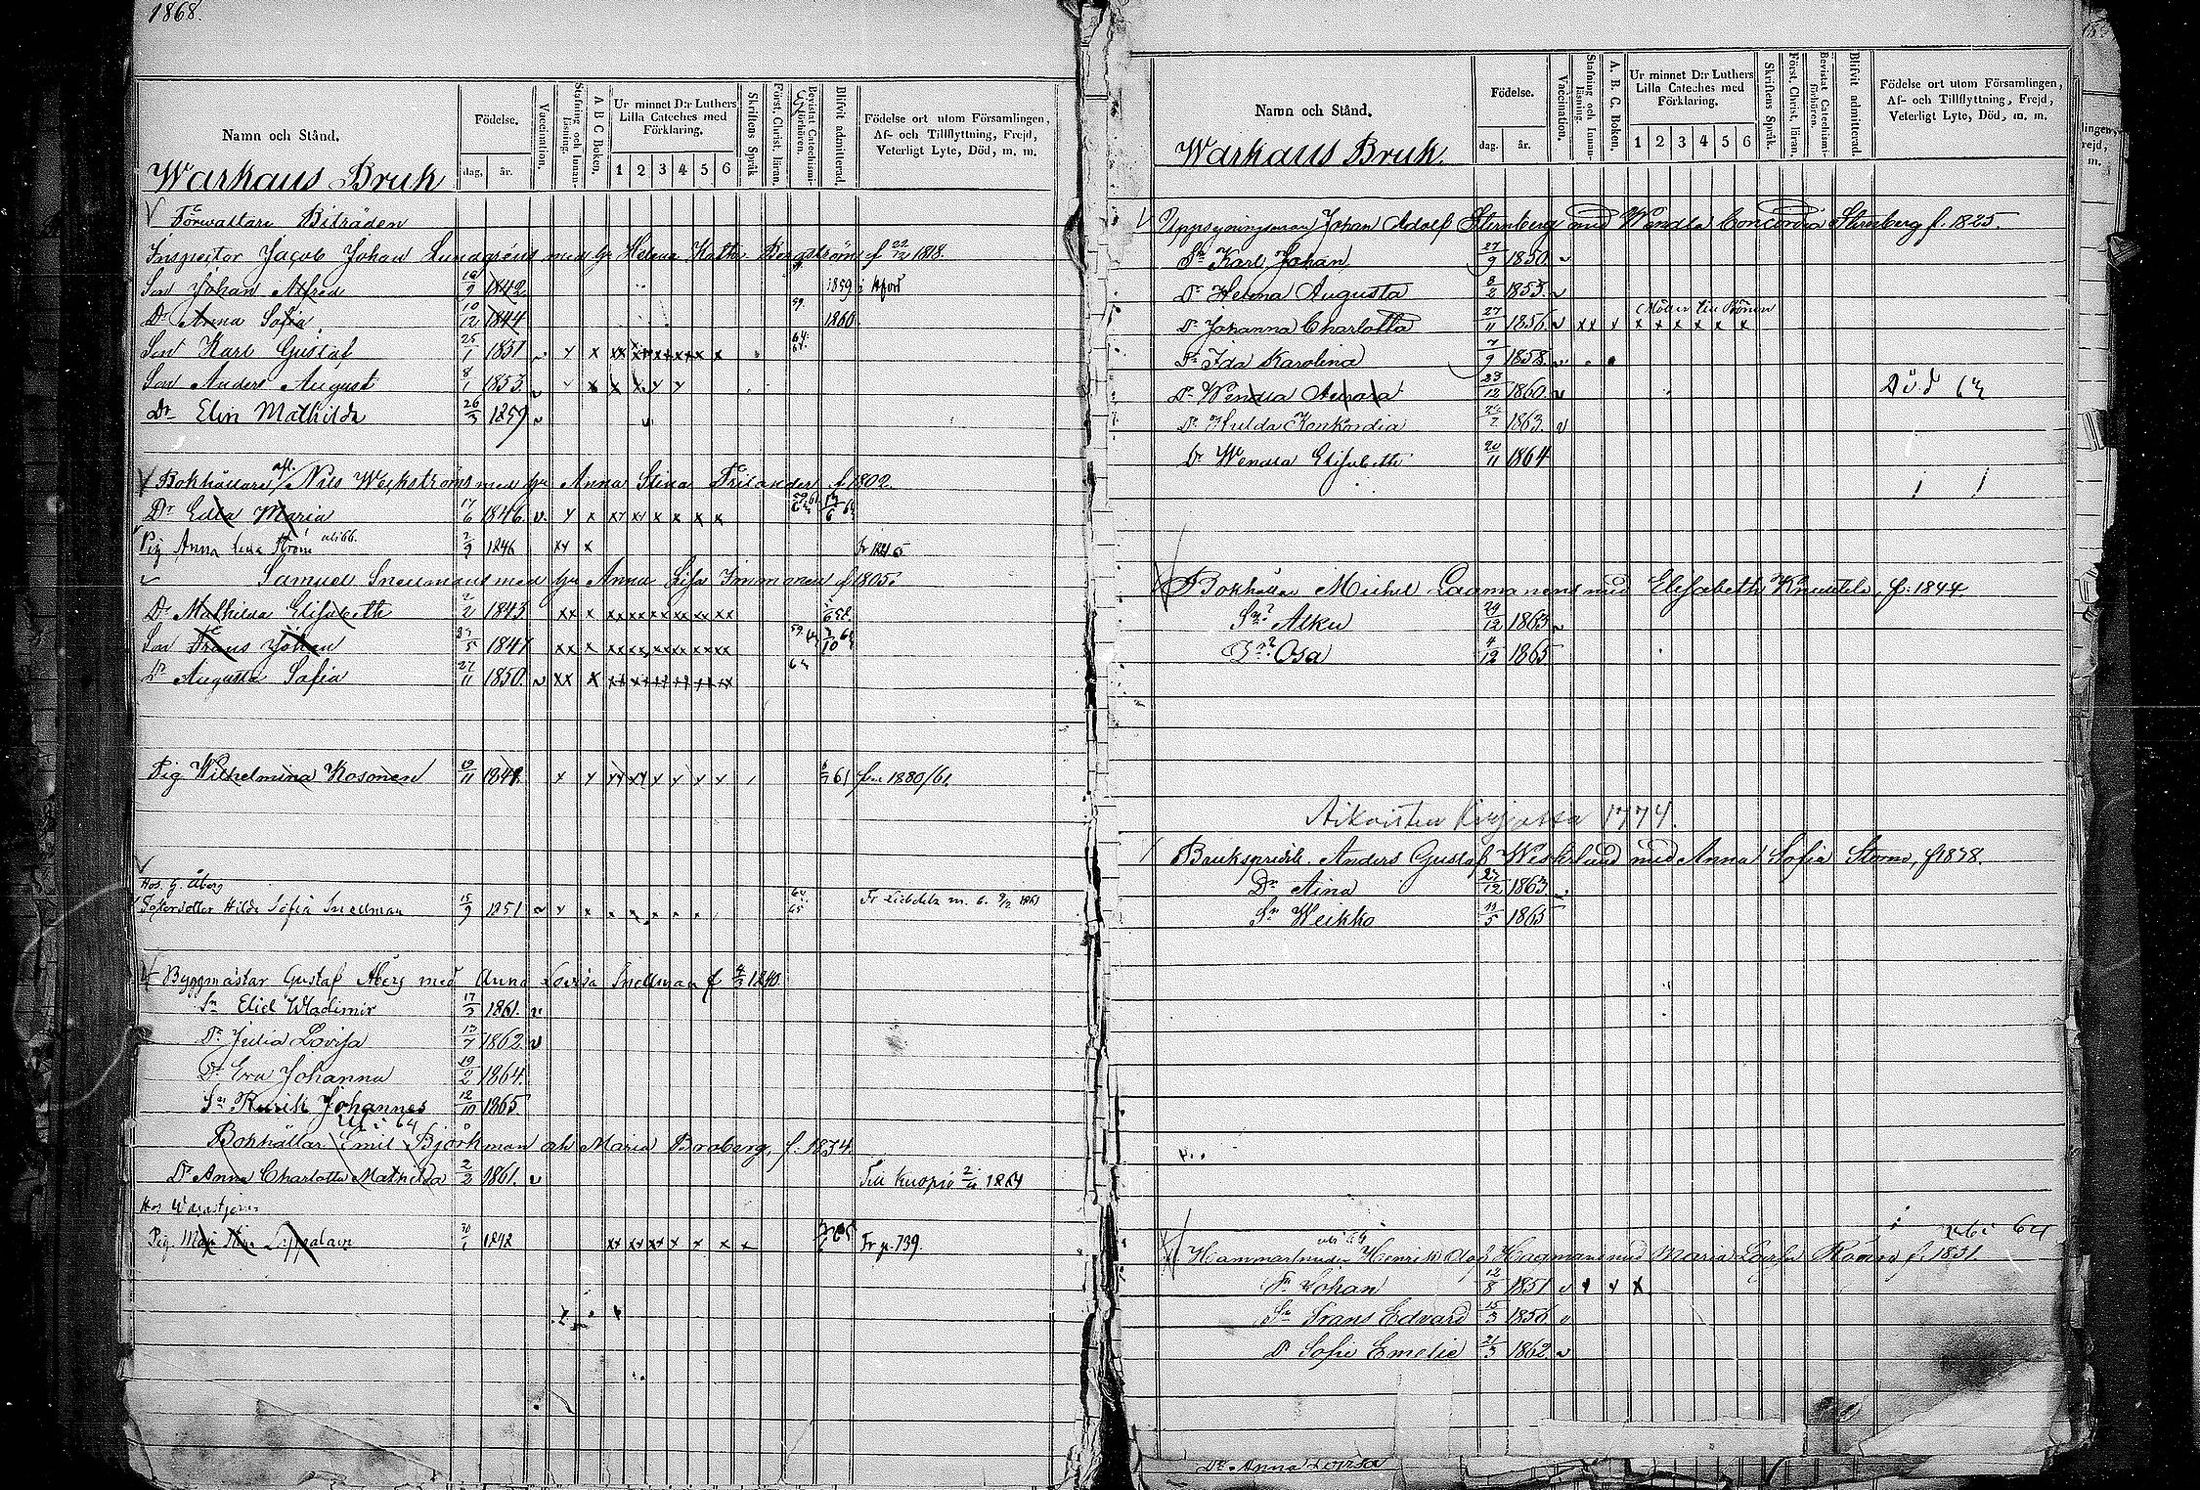 1868.
Namn och Stånd.
Födelse.
dag, år.
Vaccination.
Stafning och Innan-läsning.
A B C Boken.
Ur minnet D:r Luthers Lilla Cateches med Förklaring.
1 2 3 4 5 6
Skriftens Språk
Först. Christ. läran.
Bevistat Catechismi-förhören.
Blifvit admitterad.
Födelse ort utom Församlingen,
Af- och Tillflyttning, Frejd,
Veterligt Lyte, Död, m. m.
Warkaus Bruk
Förwaltare Biträden
Inspector Jacob Johan Lundgréns med hr Helena Kath. Bergström f 22/12 1818.
Son Johan Alfred 9 1842 1859
Dr Anna Sofia 10/12 1844 59. 1860
Son Karl Gustaf 25/1 1851 64
Son Anders August 8/1 1853
Dr Elin Mathilda 26/3 1859
Bokhållare Nils Weckströms med hr Anna Stina Frilander f 1802.
Dr Edla Maria 17/6 1846
Pig Anna 2/9 1846
Samuel Snellmans med hr Anna Lisa Immonen f 1805.
Dr Mathilda Elisabeth 2/2 1843
Son Frans Johan 5 1847
Dr Augusta Sofia 27/11 1850
Pig Wilhelmina Kosonen 19/11 1841 61
Hos G. Åberg
Fosterdotter Hilda Sofia Snellman 15/9 1851 64 65
Byggmästar Gustaf Åberg med Anna Lovisa Snellman f 1840.
Sn Eliel Wladimir 17/3 1861
Dr Julia Lovisa 13/7 1862
Dr Eva Johanna 19/2 1864
Sn Rurik Johannes 12/10 1865
Bokhållar Emil Björkman Maria Broberg, f. 1834
Dr Anna Charlotta Mathilda 2/2 1861. Till Kuopio 1864
Pig. 30/1 1842 Fr p. 739.
Namn och Stånd.
Födelse.
dag. år.
Vaccination.
Stafning och Innan-läsning.
A. B. C. Boken.
Ur minnet D:r Luthers Lilla Cateches med Förklaring.
1 2 3 4 5 6
Skriftens Språk.
Först. Christ. läran.
Bevistat Catechismi-förhören.
Blifvit admitterad.
Födelse ort utom Församlingen,
Af- och Tillflyttning, Frejd,
Veterligt Lyte, Död, m. m.
Warkaus Bruk.
Uppsyningsman Johan Adolf Sternberg med Wendla Concordia Sternberg f. 1825.
Sn Karl Johan 27/9 1850
Dr Helena Augusta 1853
Dr Johanna Charlotta 27/11 1856
Dr Ida Karolina 7/9 1858
Dr Wendla Aurora 23/12 1860 Död
Dr Hulda Konkordia 1863
Dr Wendla Elisabeth 20/11 1864
Bokhållar Michel Lagmanens med Elisabeth f. 1844
Sn Alku 29/12 1863
Osa 4/12 1865
Aikaisten kirjassa 1774.
Anders Gustaf Westerlund med Anna Sofia f 1838.
Dr Aina 27/12 1863
Sn Weikko 5 1865
64
Hammarsmeden Henrik Olof Hagmans med Maria Lovisa f. 1831
Sn Johan 12/8 1851
Sn Frans Edvard 15/3 1856
Dr Sofie Emelie 21/3 1862
Dr Anna Lovisa